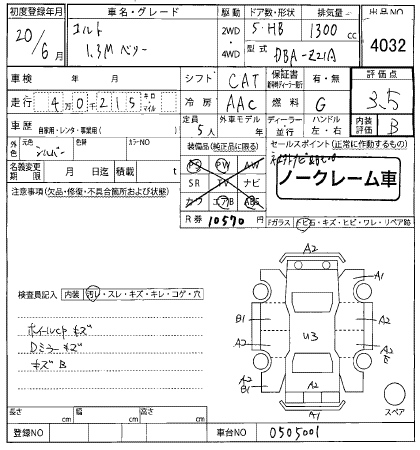 初度登録年月 車名・グレード 駆動 ドア数・形状 排気量 出品NO
20/6月 コルト 1.3M ベリー 2WD 4WD 5・HB 1300 cc 4032
型式 DBA-Z21A
車検 年 月 シフト CAT 保証書 有・無 評価点
走行 4万0千215 キロ・マイル 冷房 AAC 燃料 G 3.5
車歴 自家用・レンタ・事業用( ) 定員 5人 外車モデル 年 ディーラー・並行 ハンドル 左・右 内装評価 B
外色 元色 シルバー 色替 カラーNO 装備品(純正品に限る) セールスポイント(正常に作動するもの)
名義変更期限 月 日迄 積載量 t
PS PW AW
SR TV ナビ
カワ エアB ABS
ノークレーム車
注意事項(欠品・修復・不具合箇所および状態)
R券 10570円
Fガラス トビ石・キズ・ヒビ・ワレ・リペア跡
検査員記入 内装 汚レ・スレ・キズ・キレ・コゲ・穴
ホイールCPキズ
Dミラーキズ
キズB
A2
A1
B1 A2
U3
A2 A2
E
A2 B1 A2
A1
スペア
長さ cm 幅 cm 高さ cm
登録NO 車台NO 0505001